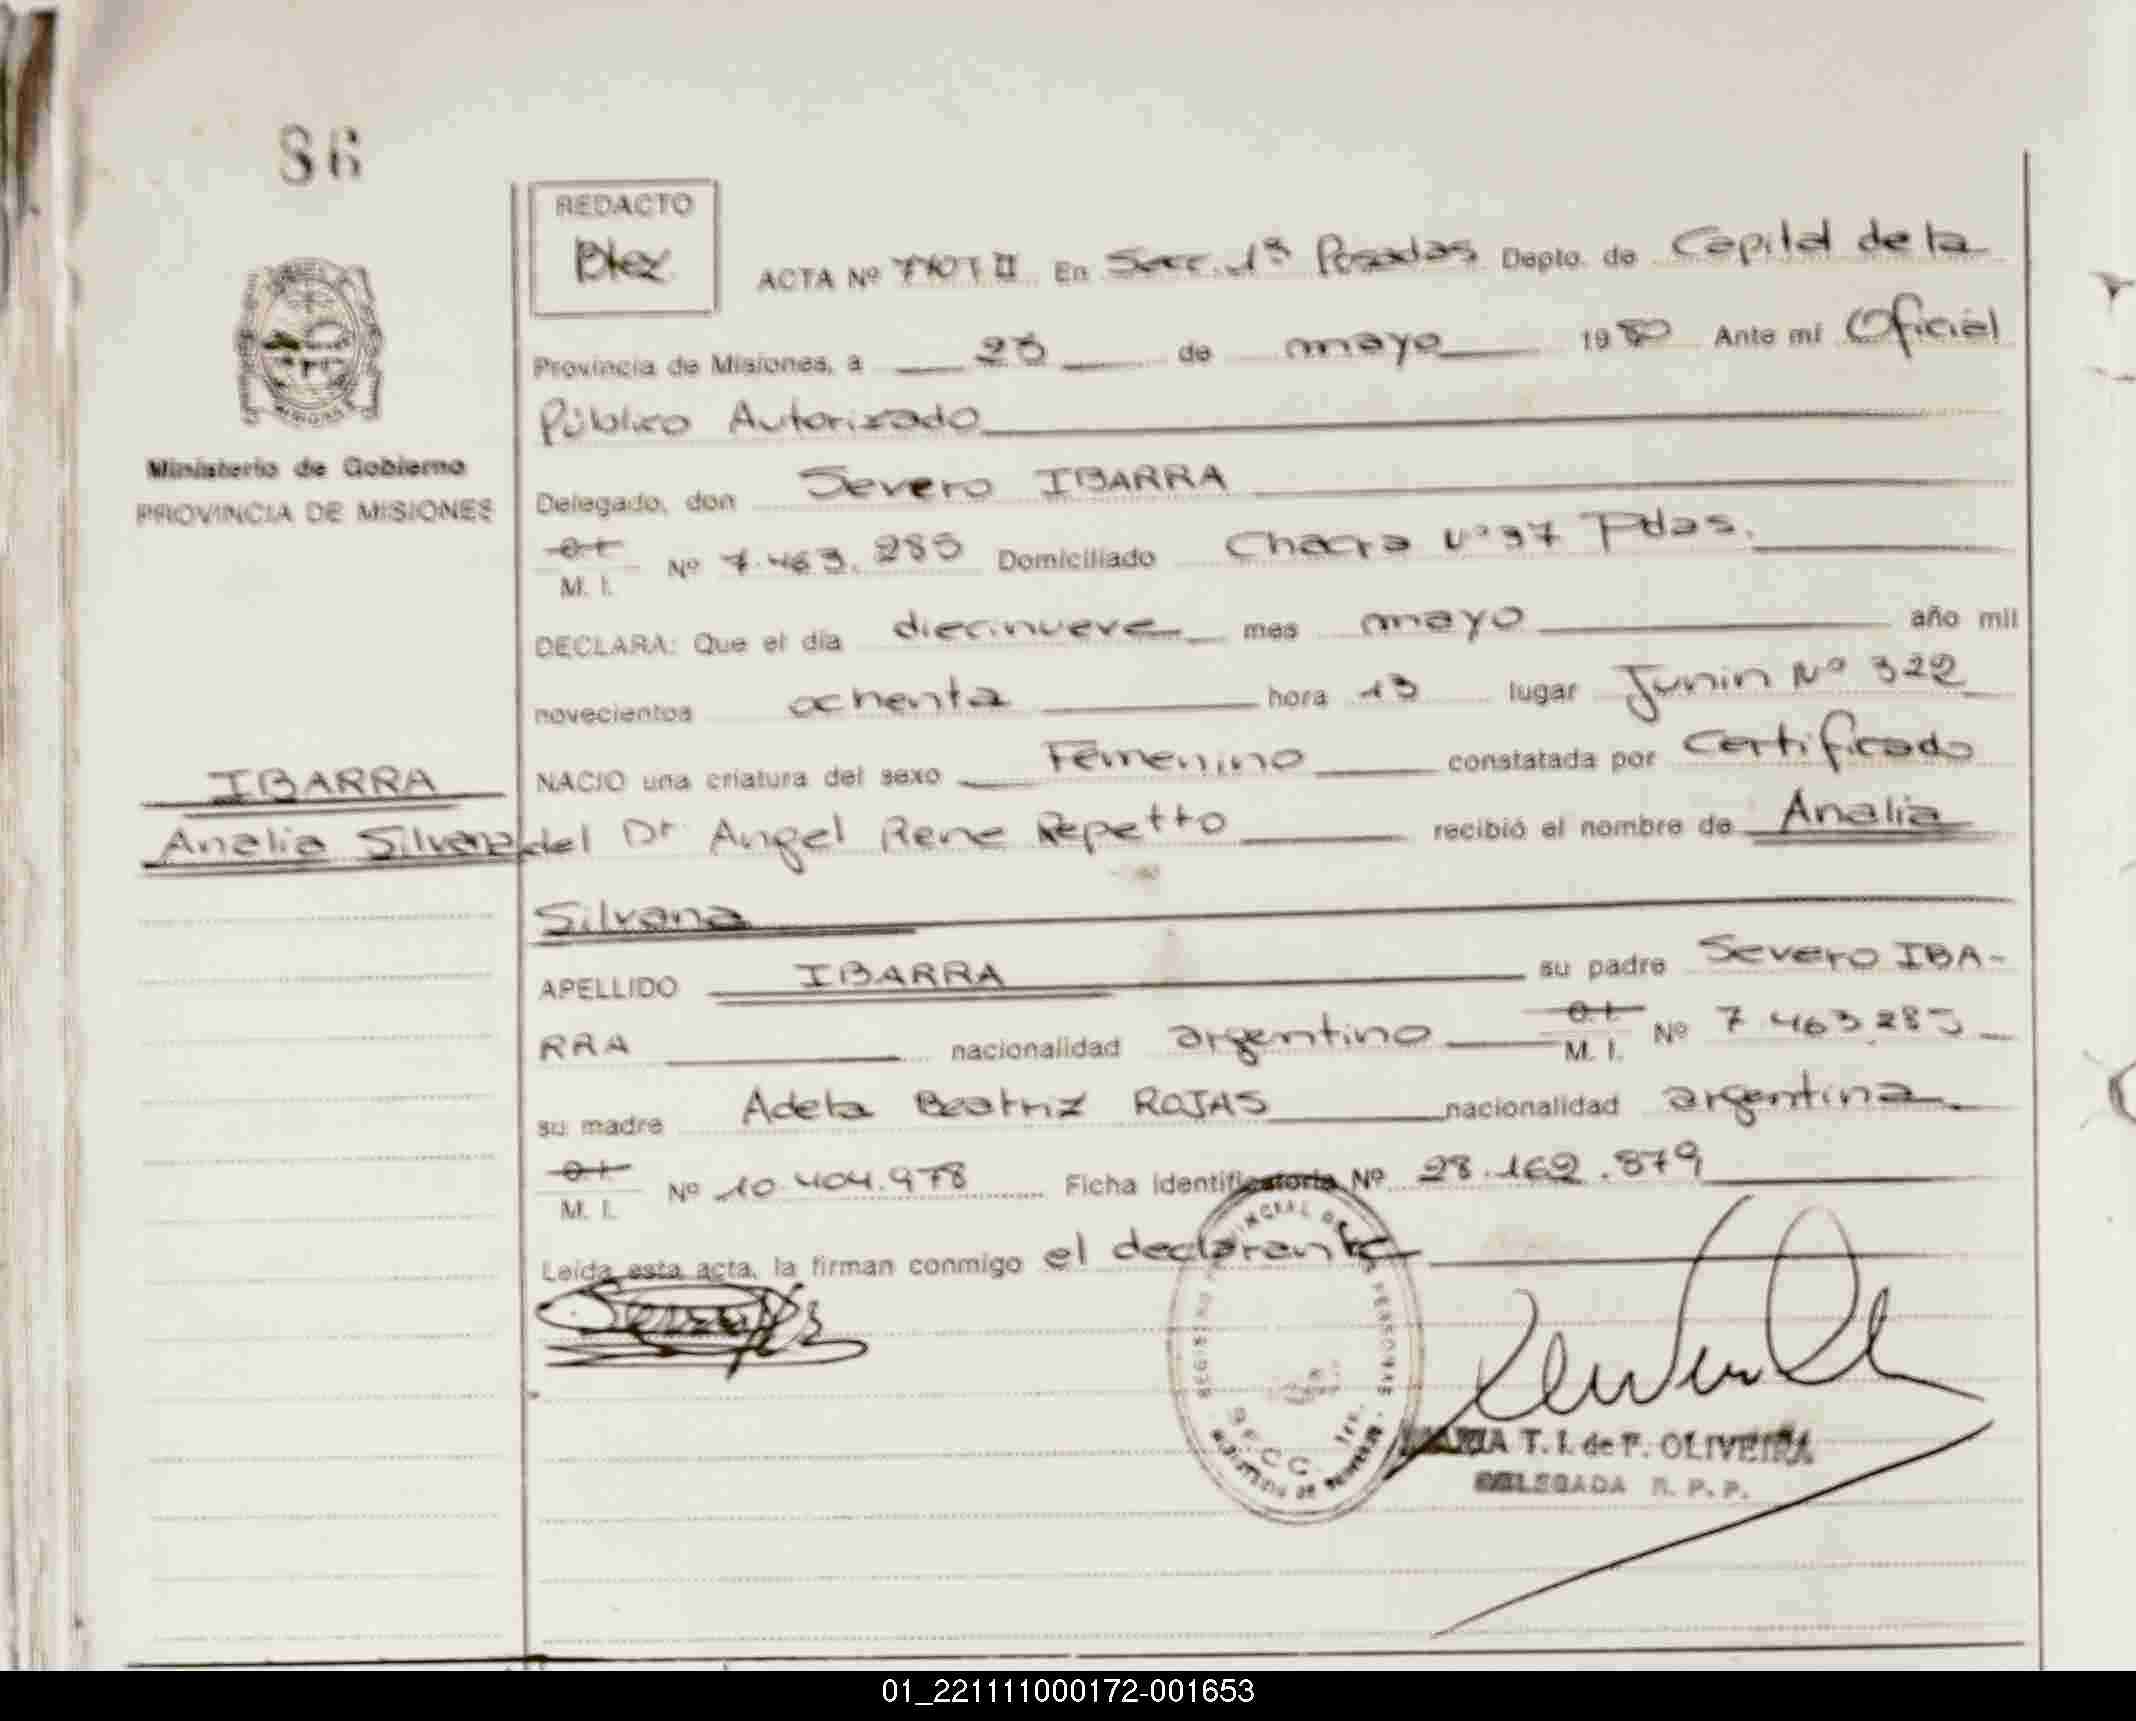 86
REDACTO
ACTA Nº En Secc. 1ª Posadas Depto. de Capital de la
Provincia de Misiones, a 23 de mayo 1980 Ante mí Oficial
Público Autorizado
Delegado, don Severo IBARRA
M. I. Nº 7.463.285 Domiciliado Chacra Nº 37 Pdas.
Ministerio de Gobierno
PROVINCIA DE MISIONES
DECLARA: Que el día diecinueve mes mayo año mil
novecientos ochenta hora 13 lugar Junin Nº 322
NACIO una criatura del sexo Femenino constatada por Certificado
IBARRA
Analia Silvana
del Dr Angel Rene Repetto recibió el nombre de Analia
Silvana
APELLIDO IBARRA su padre Severo IBA-
RRA nacionalidad argentino M. I. Nº 7.463.285
su madre Adela Beatriz ROJAS nacionalidad argentina
M. I. Nº 10.404.978 Ficha identificatoria Nº 28.162.879
Leída esta acta, la firman conmigo el declarante
MARIA T. I. de F. OLIVEIRA
DELEGADA R. P. P.
01_221111000172-001653